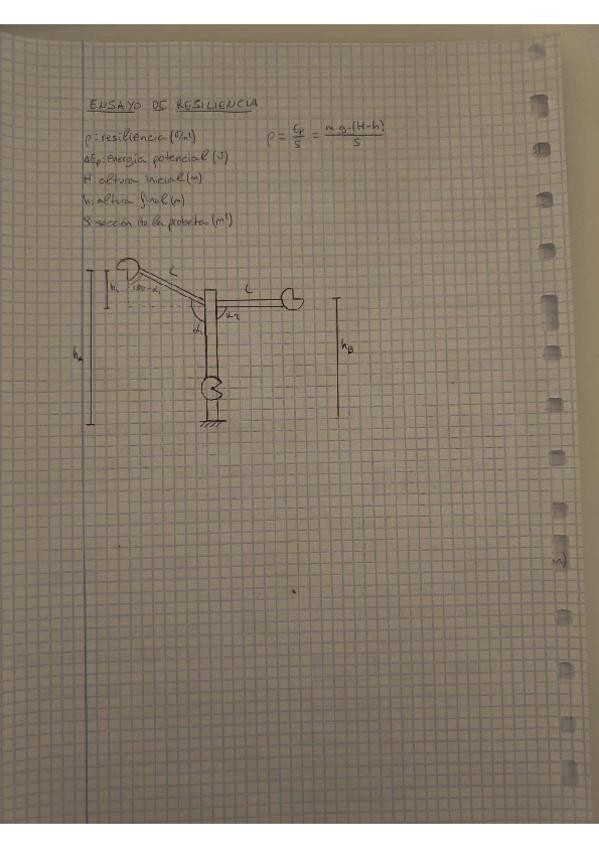 ENSAYO DE RESILIENCIA
ρ: resiliencia (J/m²) ρ = Ep/S = m·g·(H-h)/S
ΔEp: energía potencial (J)
H: altura inicial (m)
h: altura final (m)
S: sección de la probeta (m²)
L
L
180-α₁
α₂
hA
hB